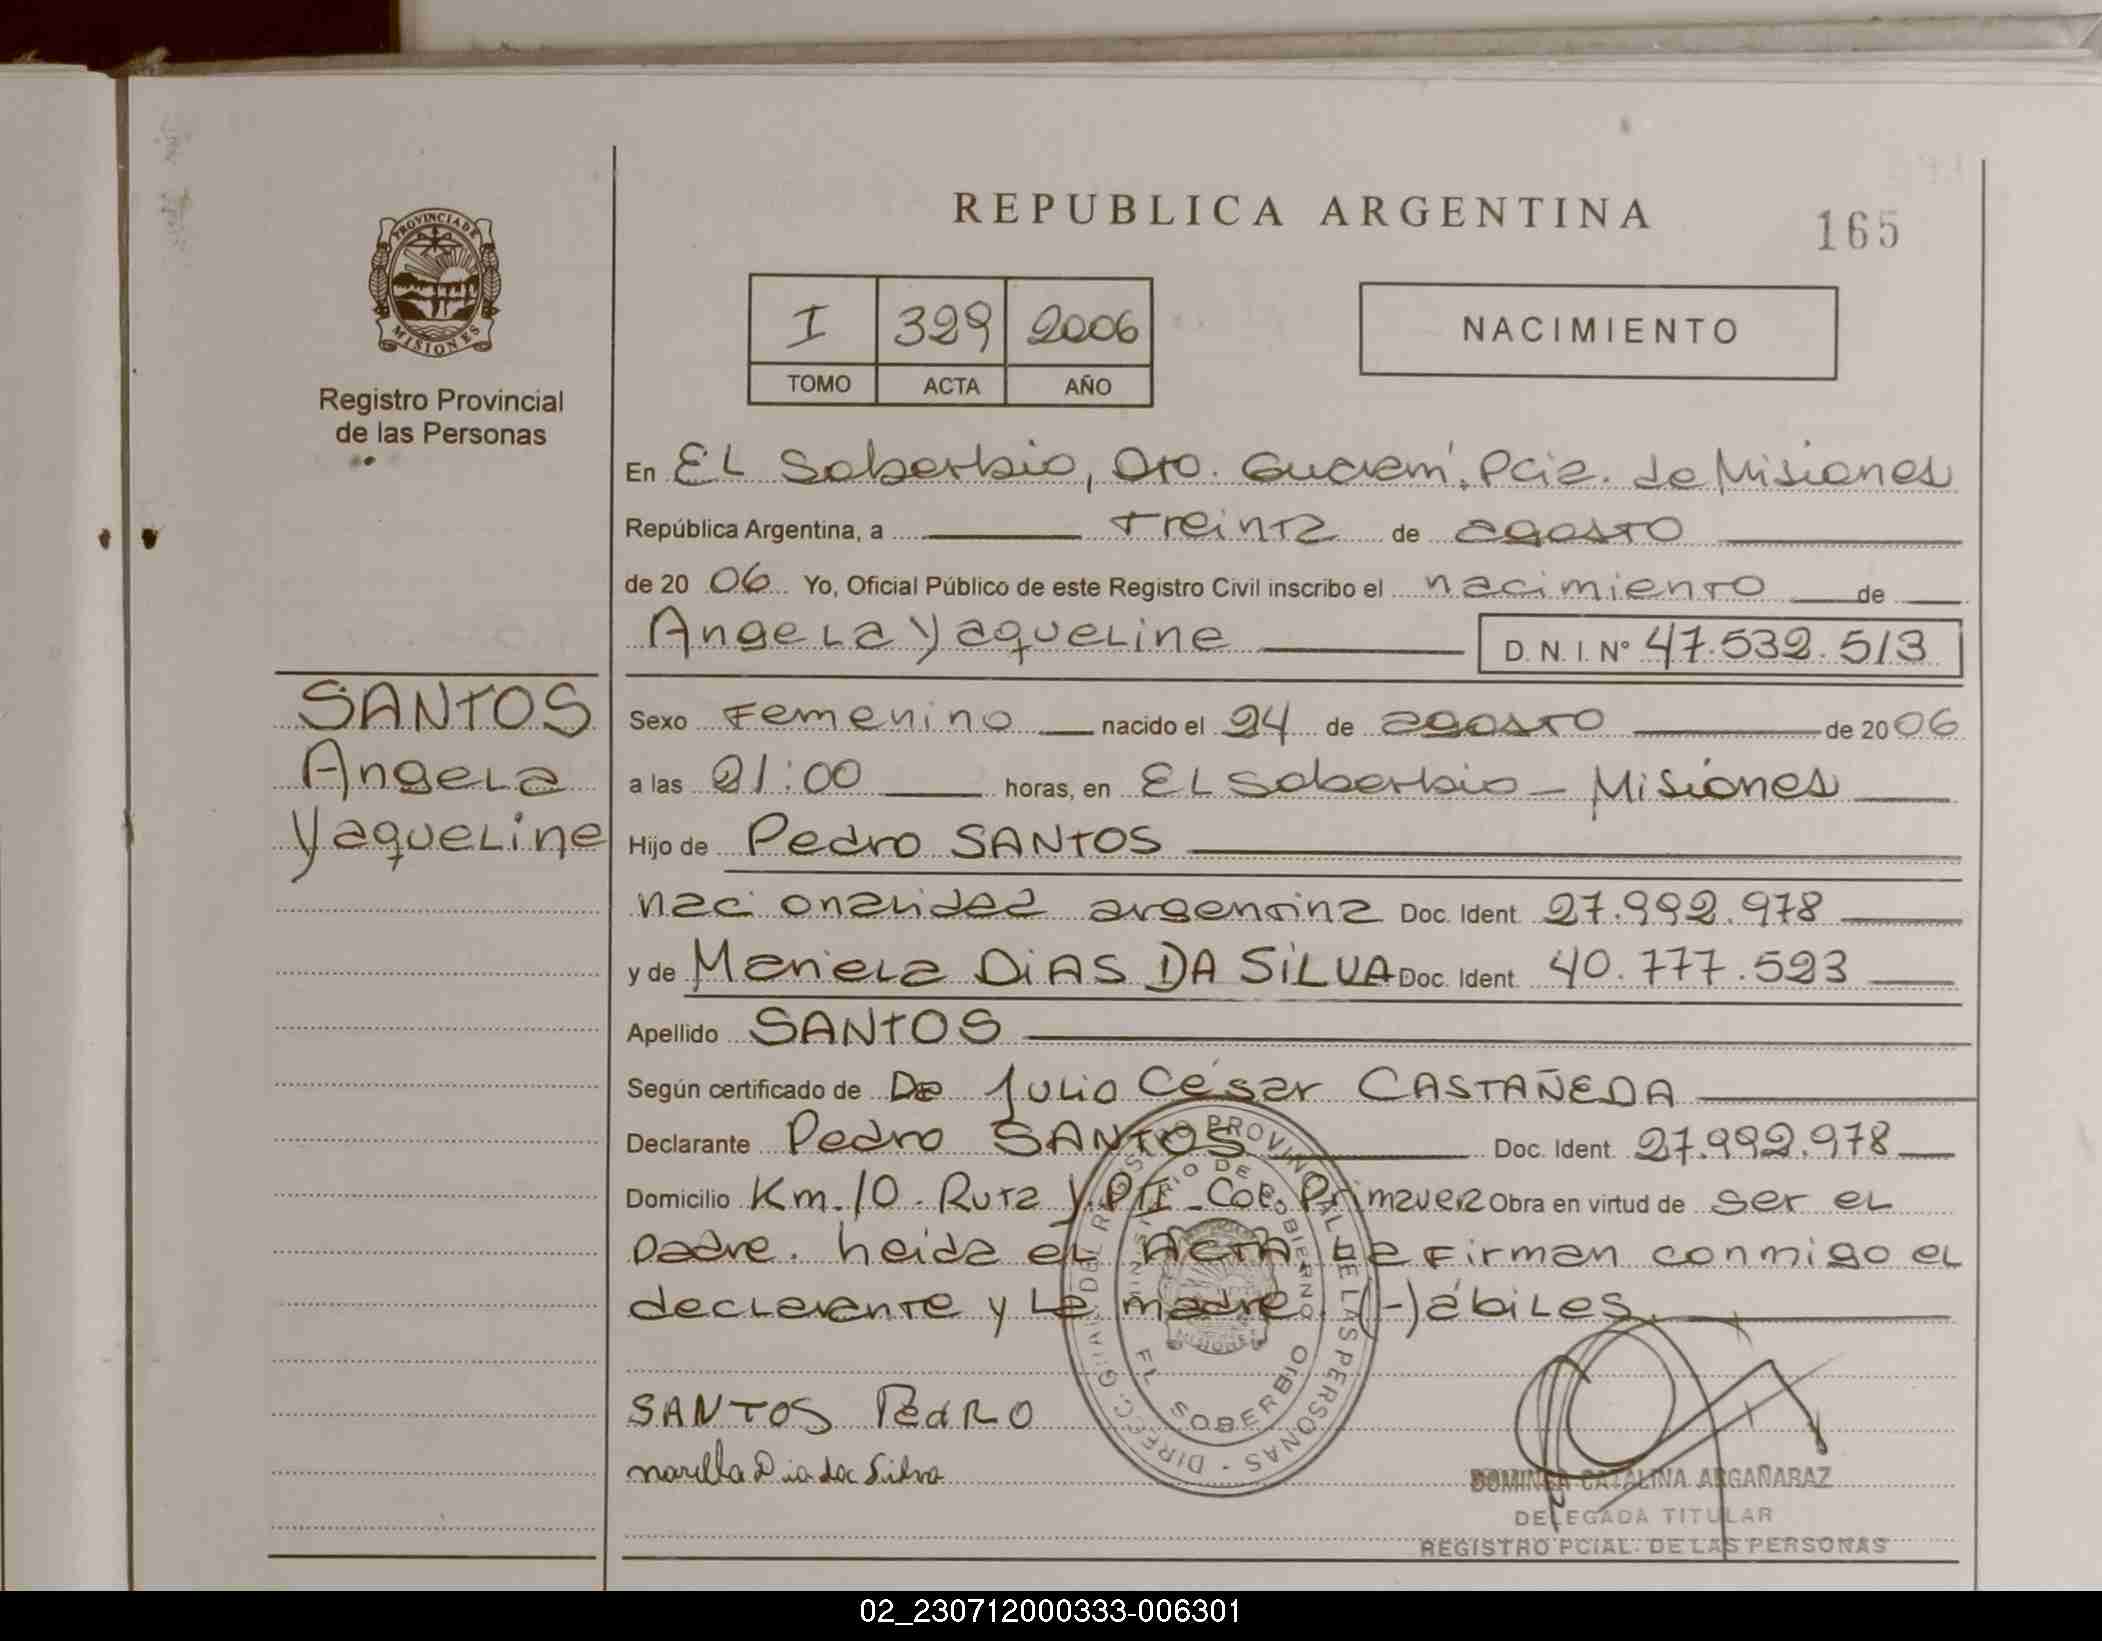 REPUBLICA ARGENTINA
165
PROVINCIA DE
MISIONES
Registro Provincial
de las Personas
I 329 2006
TOMO ACTA AÑO
NACIMIENTO
En EL Soberbio, Dto. Guaraní, Pcia. de Misiones
República Argentina, a treinta de agosto
de 20 06 Yo, Oficial Público de este Registro Civil inscribo el nacimiento de
Angela Yaqueline D. N. I. Nº 47.532.513
SANTOS
Angela
Yaqueline
Sexo Femenino nacido el 24 de agosto de 20 06
a las 21:00 horas, en EL Soberbio - Misiones
Hijo de Pedro SANTOS
nacionalidad argentina Doc. Ident. 27.992.978
y de Mariela DIAS DA SILVA Doc. Ident. 40.777.523
Apellido SANTOS
Según certificado de Julio César CASTAÑEDA
Declarante Pedro SANTOS Doc. Ident. 27.992.978
Domicilio Km. 10 - Ruta y Col. Primavera Obra en virtud de ser el
padre. heida el Acta la firman conmigo el
declarante y la madre. (-) ábiles.
DIRECC. GRAL. DEL REGISTRO PROVINCIAL DE LAS PERSONAS
MINISTERIO DE GOBIERNO
EL SOBERBIO
SANTOS PEdRO
marilla Dia da Silva
DOMINGA CATALINA ARGAÑARAZ
DELEGADA TITULAR
REGISTRO PCIAL. DE LAS PERSONAS
02_230712000333-006301